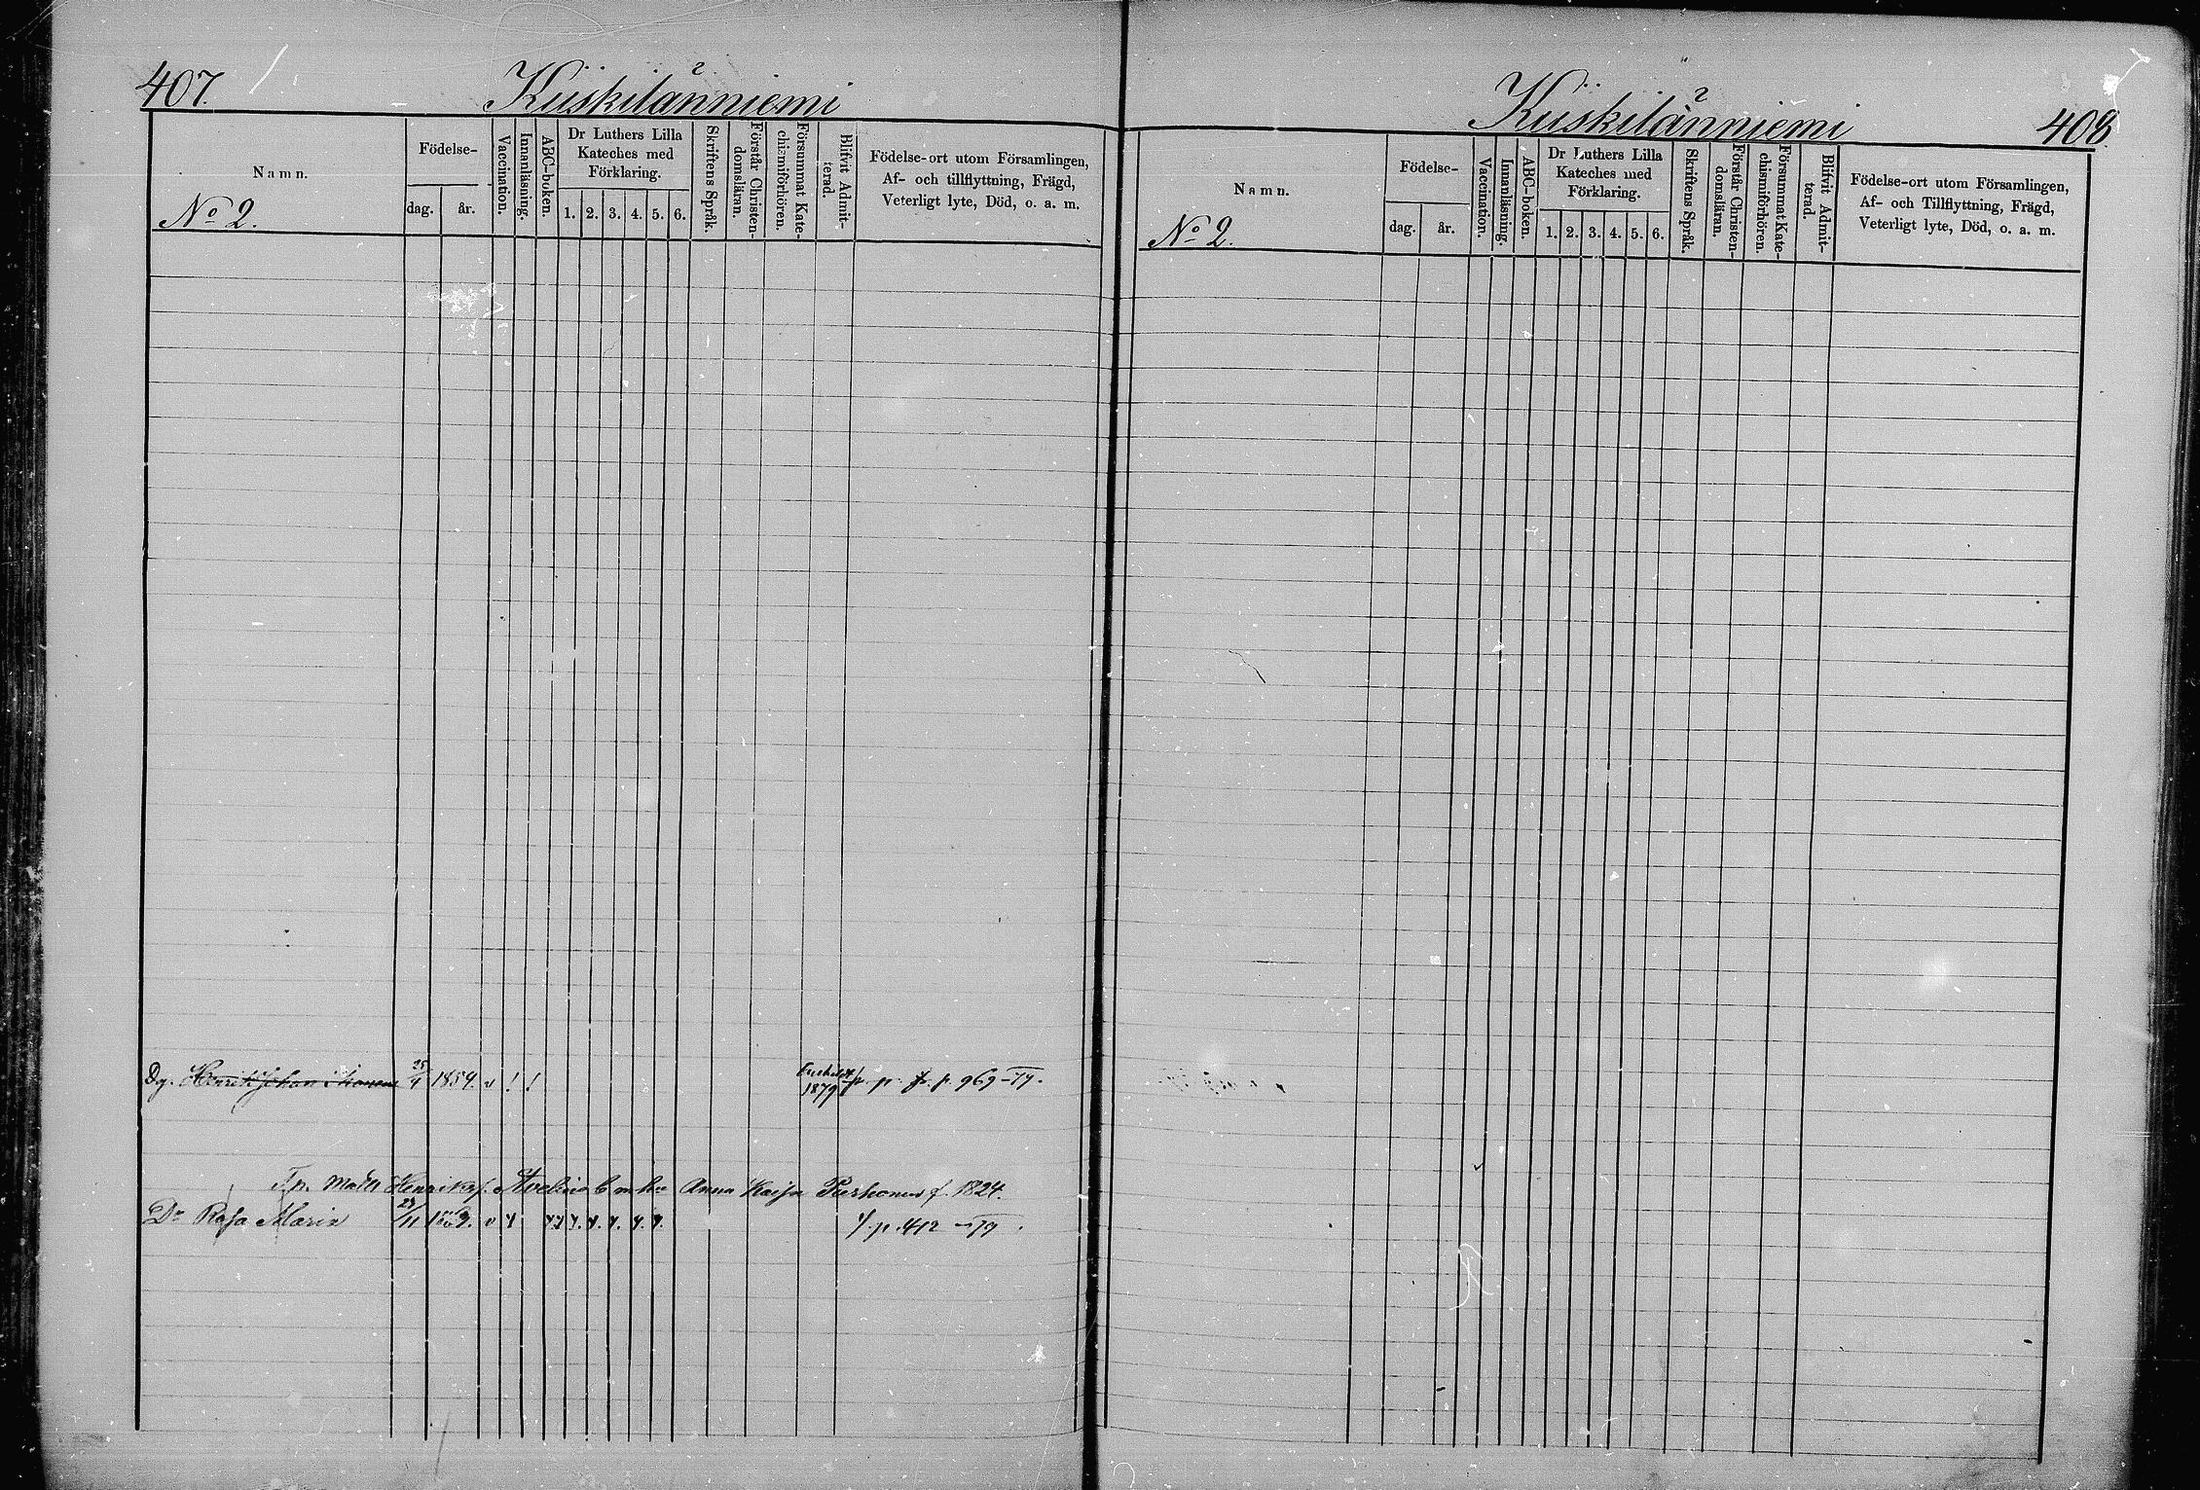 407.
Kiiskilänniemi
Namn.
No 2.
Födelse-
dag.
år.
Vaccination.
Innanläsning.
ABC-boken.
Dr Luthers Lilla
Kateches med
Förklaring.
1. 2. 3. 4. 5. 6.
Skriftens Språk.
Förstår Christen-
domsläran.
Försummat Kate-
chismiförhören.
Blifvit Admit-
terad.
Födelse-ort utom Församlingen,
Af- och tillflyttning, Frägd,
Veterligt lyte, Död, o. a. m.
Dg. Henrik Johan 25/4 1859. v ! ! 1879 p. 969 - IV.
Henriks Anna Kaisa f. 1824.
Dr Rosa Maria 27/11 v p. 412 - IV
Kiiskilänniemi
408.
Namn.
No 2.
Födelse-
dag.
år.
Vaccination.
Innanläsning.
ABC-boken.
Dr Luthers Lilla
Kateches med
Förklaring.
1. 2. 3. 4. 5. 6.
Skriftens Språk.
Förstår Christen-
domsläran.
Försummat Kate-
chismiförhören.
Blifvit Admit-
terad.
Födelse-ort utom Församlingen,
Af- och Tillflyttning, Frägd,
Veterligt lyte, Död, o. a. m.